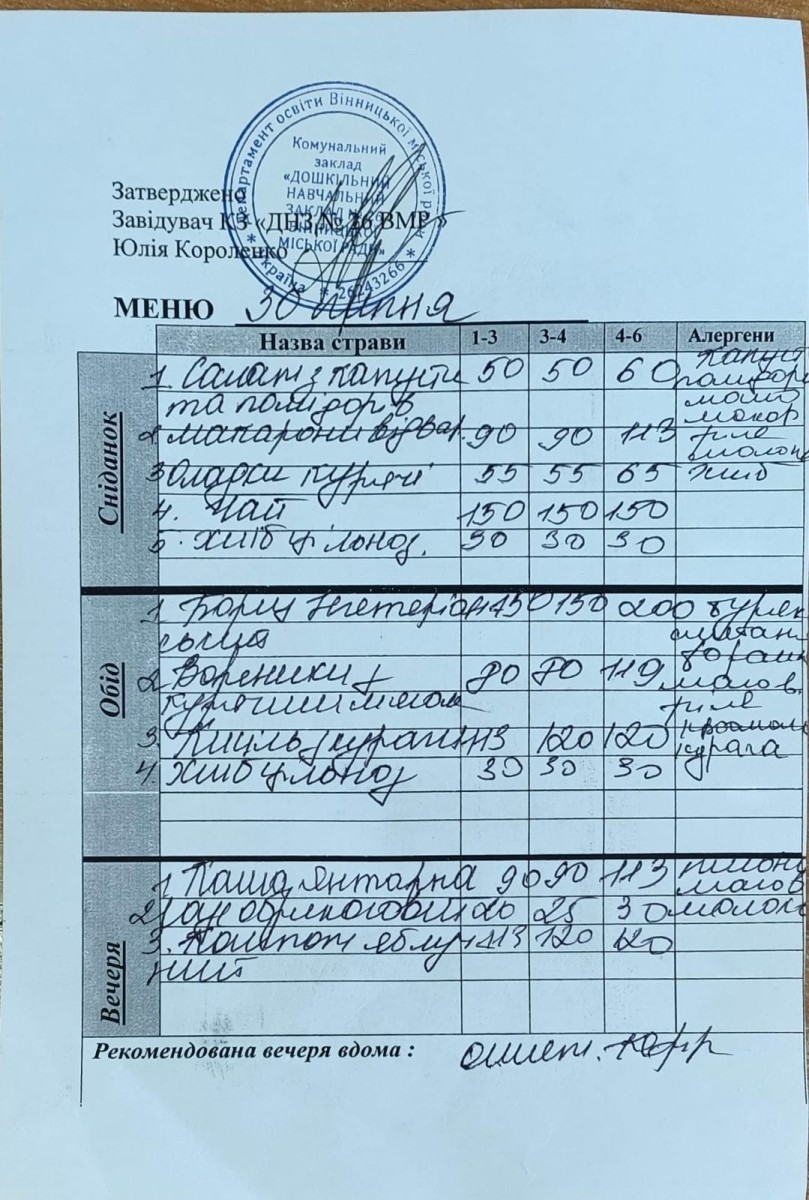 Департамент освіти Вінницької міської ради
* Україна * 26243266 *
Комунальний
заклад
«ДОШКІЛЬНИЙ
НАВЧАЛЬНИЙ
ЗАКЛАД
МІСЬКОЇ РАДИ»
Затверджено
Завідувач КЗ «ДНЗ № 26 ВМР »
Юлія Короленко
МЕНЮ 30 липня
Назва страви 1-3 3-4 4-6 Алергени
Сніданок
1. Салат з капусти 50 50 60 капуст
та помідорів помідори
2. макарони відвар. 90 90 113
3 Оладки курячі 55 55 65 хліб
4. Чай 150 150 150
5. хліб цільноз. 30 30 30
Обід
1. Борщ 150 150 200 буряк
ський сметан
2. Вареники з 80 80 119
курячим мясом
3. Кисіль з кураги 113 120 120 курага
4. Хліб цільноз 30 30 30
Вечеря
1. Каша Янтарна 90 90 113 пшоно
2. 20 25 30 молоко
3. Компот яблуч 113 120 120
ний
Рекомендована вечеря вдома : омлет. кефір